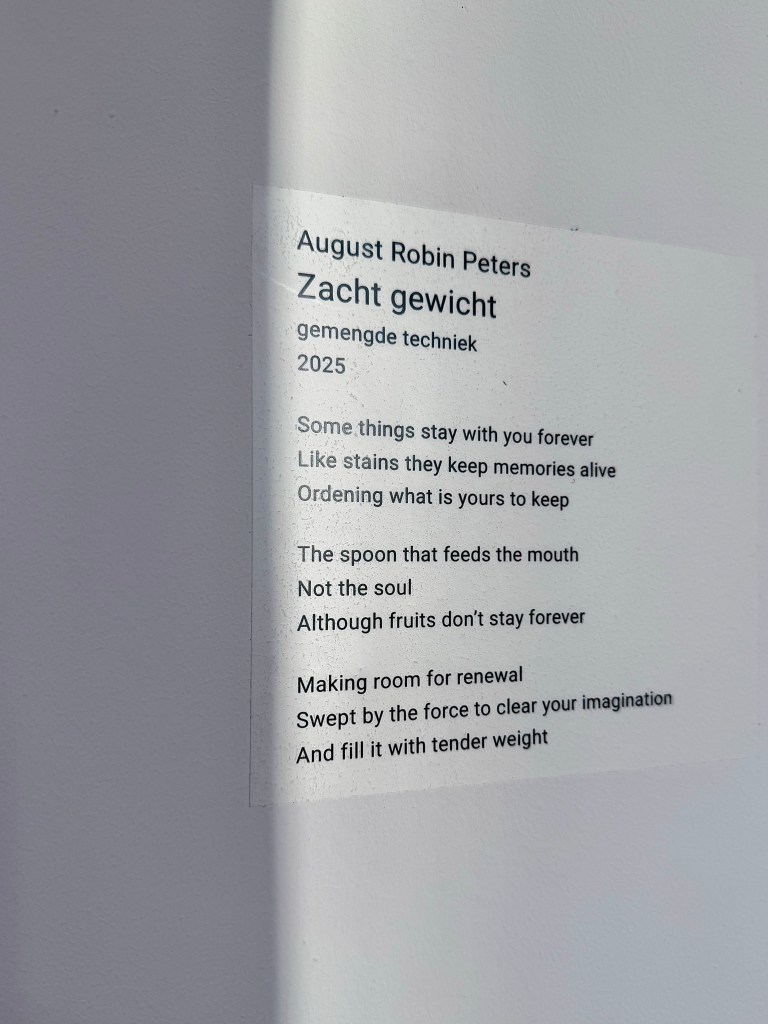 August Robin Peters
Zacht gewicht
gemengde techniek
2025
Some things stay with you forever
Like stains they keep memories alive
Ordening what is yours to keep
The spoon that feeds the mouth
Not the soul
Although fruits don’t stay forever
Making room for renewal
Swept by the force to clear your imagination
And fill it with tender weight